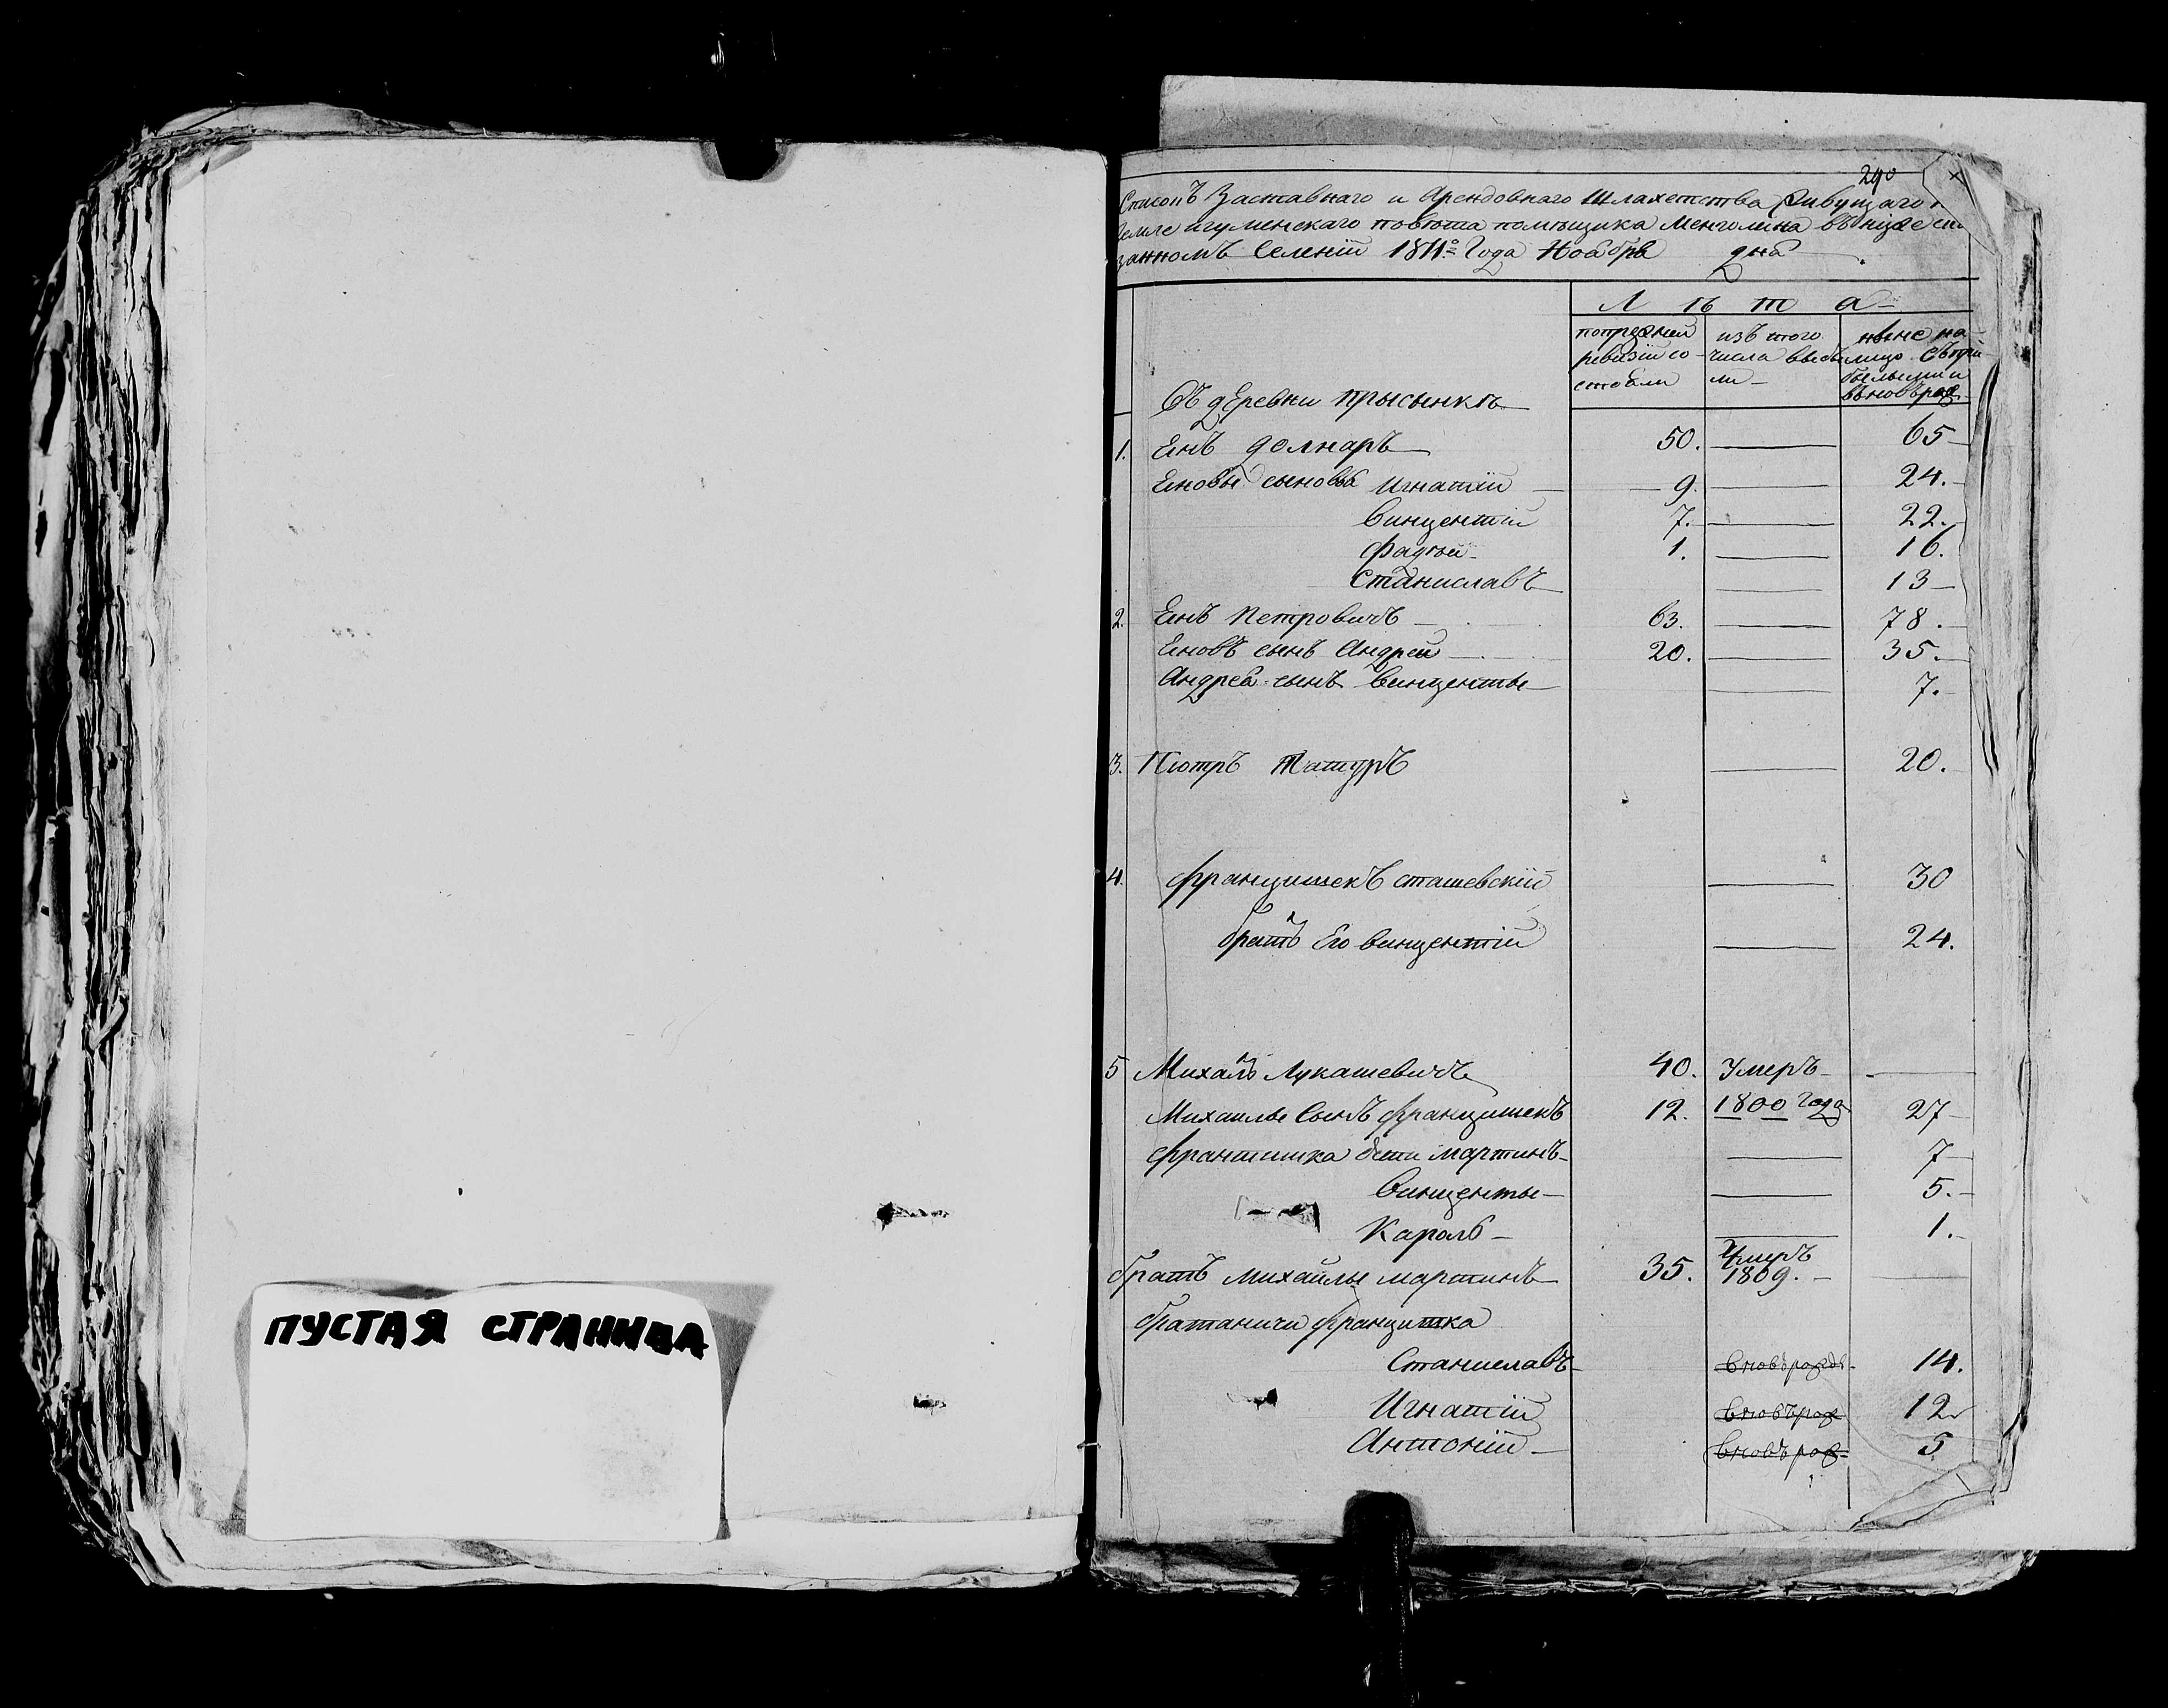 ПУСТАЯ СТРАНИЦА
290
Списокъ Заставнаго и Арендовнаго Шлахетства Живущаго
Земле игуменскаго повѣта помѣщика Менголина въ ниже
занномъ Селении 1811го Года Ноября дня
Л ѣ т а
попрежней ревизіи состояли
изъ того числа выбыли
ныне на лицо съ прибылыми и вновь рож
Въ деревни Прысынкѣ
1. Енъ Долнаръ 50. 65
Еновы сыновья Игнатій 9. 24.
Винцентій 7. 22.
Фадѣй 1. 16.
Станиславъ 13
2. Енъ Петровичъ 63. 78.
Еновъ сынъ Андрей 20. 35.
Андрея сынъ Винценты 7.
3. Піотръ Татуръ 20.
4. Францишекъ Сташевскій 30
братъ Его Винцентій 24.
5 Михалъ Лукашевичъ 40. Умеръ
Михаилы Сынъ Францишекъ 12. 1800 Года 27
Франтишка дети Мартинъ 7
Винценты 5.
Кароль 1.
братъ Михаилы Мартинъ 35. Умеръ 1809.
братаничи Францишка
Станиславъ вновърожде 14.
Игнатій вновърож 12
Антоній вновърож 5